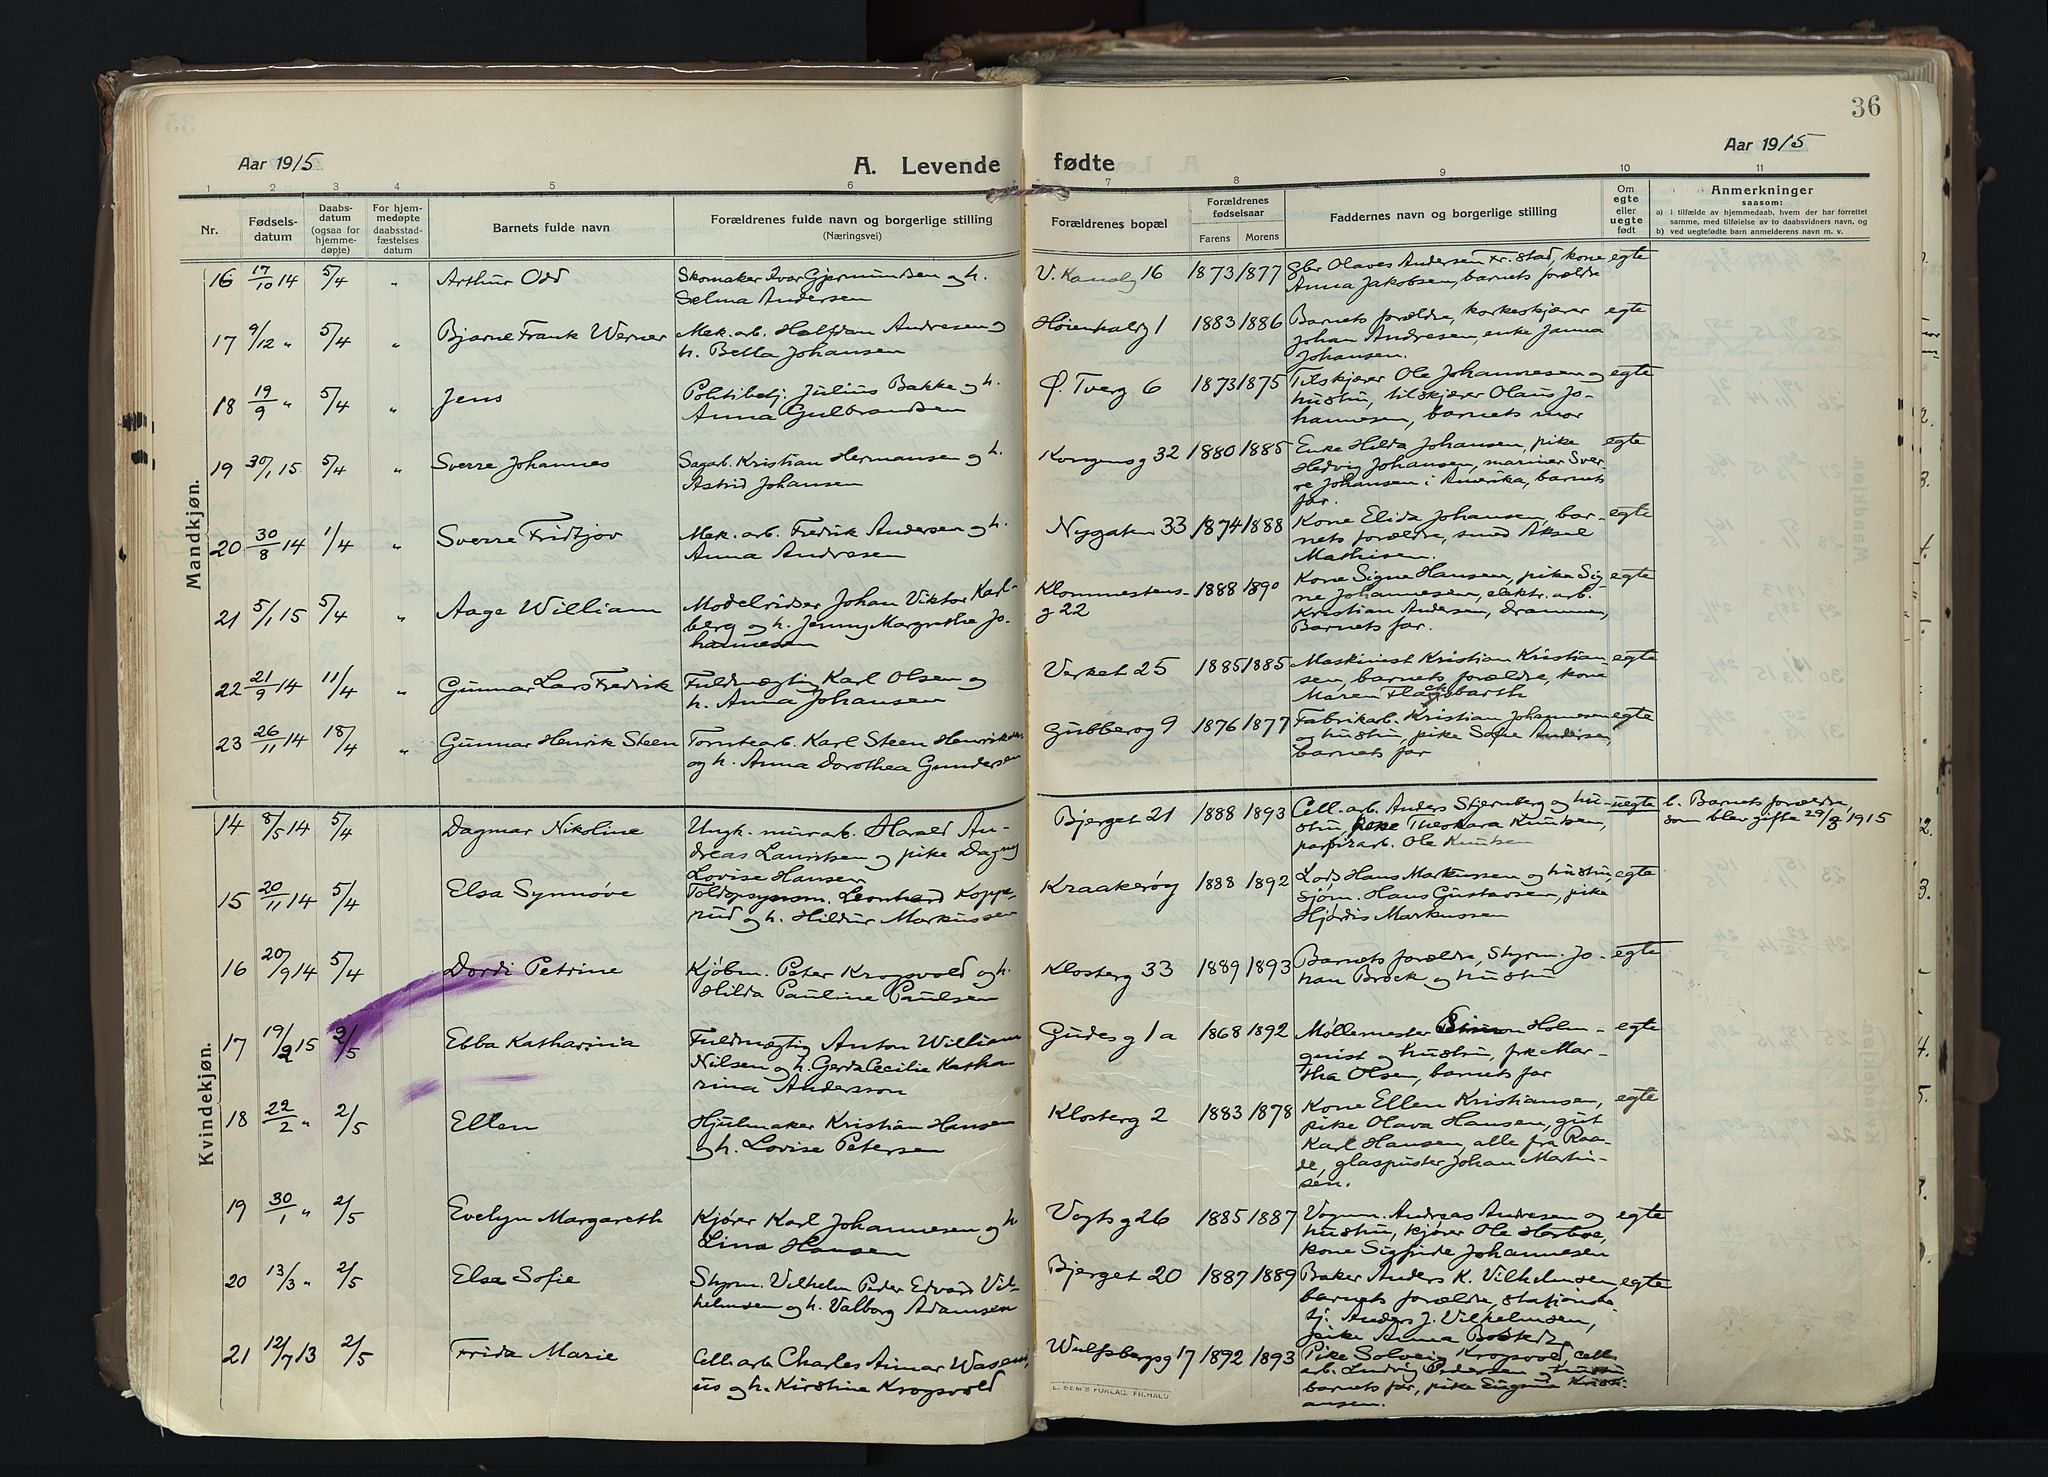 36
Aar 1915
A. Levende fødte
Aar 1915
1 2 3 4 5 6 7 8 9 10 11
Nr.
Fødsels-
datum
Daabs-
datum
(ogsaa for
hjemme-
døpte)
For hjem-
medøpte
daabsstad-
fæstelses
datum
Barnets fulde navn
Forældrenes fulde navn og borgerlige stilling
(Næringsvei)
Forældrenes bopæl
Forældrenes
fødselsaar
Farens Morens
Faddernes navn og borgerlige stilling
Om
egte
eller
uegte
født
Anmerkninger
saasom:
a) i tilfælde av hjemmedaab, hvem der har forrettet
samme, med tilføielse av to daabsvidners navn, og
b) ved uegtefødte barn anmelderens navn m. v.
Mandkjøn.
16 17/10 14 5/4 " Arthur Odd
Skomaker Ivar Gjermundsen og h.
Selma Andersen
V. Kanalg 16 1873 1877
Olaves Andersen Fr.stad, kone egte
Anna Jakobsen, barnets forældre
17 9/12 " 5/4 " Bjarne Frank Werner
Mek. arb. Halfdan Andresen og
h. Betla Johansen
1 1883 1886
Barnets forældre, korkeskjærer egte
Johan Andresen, enke Janna
Johansen.
18 19/9 " 5/4 " Jens
Politibetj. Julius Bakke og h.
Anna Gulbrandsen
Ø. Tverg 6 1873 1875
Tilskjærer Ole Johannesen og egte
hustru, tilskjærer Olaus Jo-
hannesen, barnets mor
19 30/1 15 5/4 " Sverre Johannes
Sagarb. Kristian Hermansen og h.
Astrid Johansen
Kongensg 32 1880 1885
Enke Hilda Johansen, pike egte
Hedvig Johansen, mariner Sver-
re Johansen i Amerika, barnets
far.
20 30/8 14 1/4 " Sverre Fridtjov
Mek. arb. Fredrik Andersen og h.
Anna Andresen
Nygaten 33 1874 1888
Kone Elida Johansen, bar- egte
nets forældre, smed Aksel
Mathisen.
21 5/1 15 5/4 " Aage William
Modelsnidser Johan Viktor Karl-
berg og h. Jenny Margrethe Jo-
hannesen
Klommestens-
g 22 1888 1890
Kone Signe Hansen, pike Sig- egte
ne Johannesen, elektr. arb.
Kristian Andersen, Drammen,
Barnets far.
22 21/9 14 11/4 " Gunnar Lars Fredrik
Fuldmægtig Karl Olsen og
h. Anna Johansen
Verket 25 1885 1885
Maskinist Kristian Kristian- egte
sen, barnets forældre, kone
Maren
23 26/11 14 18/4 " Gunnar Henrik Steen
Tomtearb. Karl Steen Henriksen
og h. Anna Dorothea Gundersen
Gubberog 9 1876 1877
Fabrikarb. Kristian Johannesen egte
og hustru, pike Sofie Andersen,
barnets far
Kvindekjøn.
14 8/5 14 5/4 Dagmar Nikoline
Ungk. murarb. Harald An-
dreas Lauritsen og pike Dagny
Lovise Hansen
Bjerget 21 1888 1893
Cell. arb. Anders Stjernberg og hu- uegte
stru, pike Theodora Knutsen,
parfirarb. Ole Knutsen
b. Barnets forældre,
som blev gifte 29/3 1915
15 20/11 14 5/4 Elsa Synnøve
Toldopsynsm. Leonhard Koppe-
rud og h. Hildur Markussen
Kraakerøy 1888 1892
Lods Hans Markussen og hustru, egte
Sjøm. Hans Gustavsen, pike
Hjørdis Markussen
16 20/9 14 5/4 Dordi Petrine
Kjøbm. Peter Krogsvold og h.
Hilda Pauline Paulsen
Klosterg 33 1889 1893
Barnets forældre, Styrm. Jo- egte
han Brock og hustru
17 19/2 15 2/5 Ebba Katharinia
Fuldmægtig Anton William
Nilsen og h. Gerda Cecilie Katha-
rina Andersson
Gudesg 1a 1868 1892
Møllemester Simon Holm- egte
quist og hustru, frk Mar-
tha Olsen, barnets far
18 22/2 " 2/5 Ellen
Hjulmaker Kristian Hansen
og h. Lovise Petersen
Klosterg 2 1883 1878
Kone Ellen Kristiansen, egte
pike Olava Hansen, gut
Karl Hansen, alle fra Raa-
de, glaspuster Johan Martin-
sen.
19 30/1 " 2/5 Evelyn Margareth
Kjører Karl Johannesen og h
Lina Hansen
Vogtsg 26 1885 1887
Vognm. Andreas Andresen og egte
hustru, kjører Ole Harboe,
kone Sigfride Johannesen
20 13/3 " 2/5 Elsa Sofie
Styrm. Vilhelm Peder Edvard Vil-
helmsen og h. Valborg Adamsen
Bjerget 20 1887 1889
Baker Anders K. Vilhelmsen, egte
barnets forældre, stationsbe-
tj. Anders J. Vilhelmsen,
pike Anna
21 12/7 13 2/5 Frida Marie
Cell. arb. Charles Aimar Waseni-
us og h. Kirstine Krogsvold
Wulfsbergsg 17 1892 1893
Pike Solveig Krogsvold, cell.
arb. Ludvig Pedersen og hustru
barnets far, pike Eugenie Kristi-
ansen.
E. SEM'S FORLAG, FR.HALD